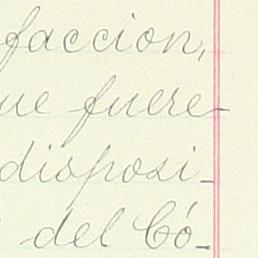 faccion,
ue fuere
disposi-
del Có-